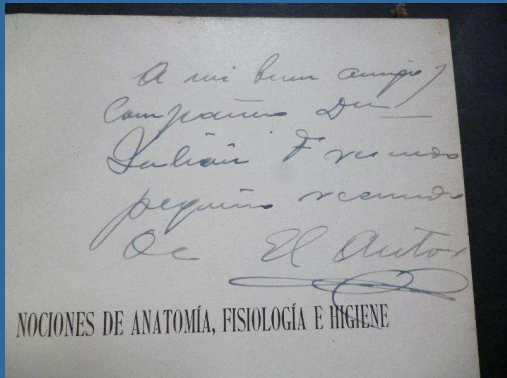 A mi buen amigo y
Compañero Don
Julián
pequeño recuerdo
de El Autor
NOCIONES DE ANATOMÍA, FISIOLOGÍA E HIGIENE